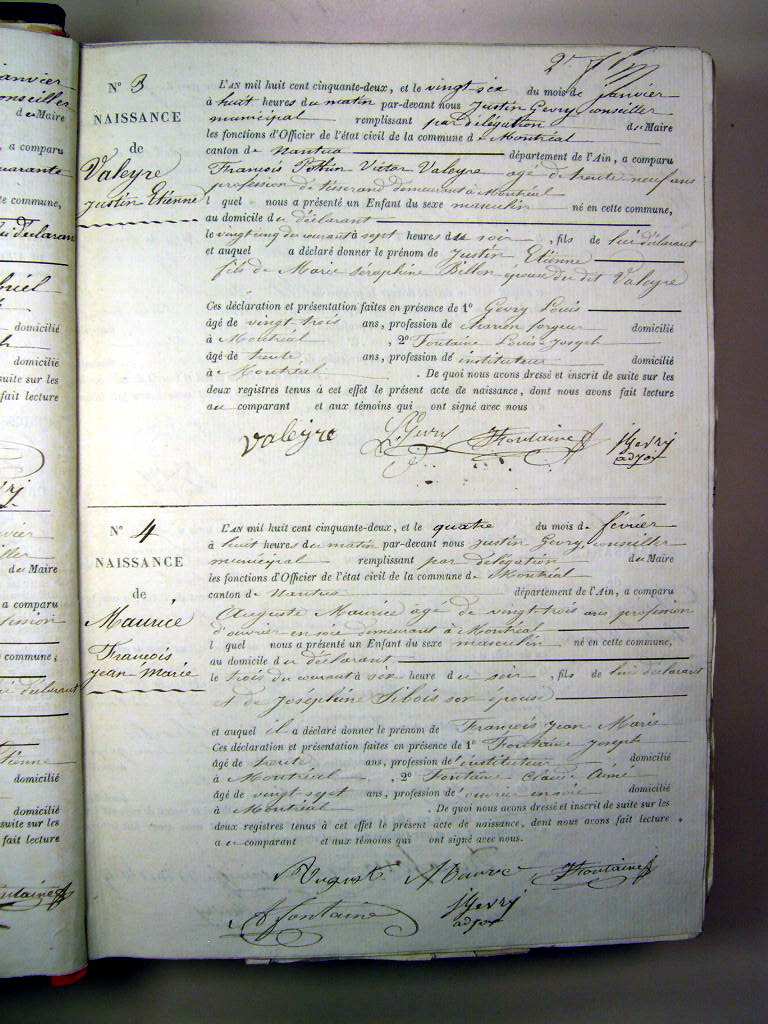 anvier
onseiller
du Maire
a comparu
uarante
tte commune,
ui déclaran
briel
domicilié
domicilié
suite sur les
fait lecture
du Maire
a comparu
fession
commune;
déclarant
ienne
domicilié
domicilié
suite sur les
fait lecture
ontaine
2e
N° 3
NAISSANCE
de
Valeyre
Justin Etienne
L'AN mil huit cent cinquante-deux, et le vingt six du mois de janvier
à huit heures du matin par-devant nous Justin Gevry, conseiller
municipal remplissant par délégation du Maire
les fonctions d'Officier de l'état civil de la commune de Montréal
canton de Nantua département de l'Ain, a comparu
François Victor Valeyre agé de trente neuf ans
profession de tisserand demeurant à Montréal
l quel nous a présenté un Enfant du sexe masculin né en cette commune,
au domicile du déclarant
le vingt cinq du courant à sept heures du soir, fils de lui déclarant
et auquel a déclaré donner le prénom de Justin Etienne
fils de Marie Séraphine Billon épouse du dit Valeyre
Ces déclaration et présentation faites en présence de 1° Gevry Louis
âgé de vingt trois ans, profession de charron forgeur domicilié
à Montréal, 2° Fontaine Louis Joseph
âgé de trente ans, profession de instituteur domicilié
à Montréal. De quoi nous avons dressé et inscrit de suite sur les
deux registres tenus à cet effet le présent acte de naissance, dont nous avons fait lecture
au comparant et aux témoins qui ont signé avec nous
Valeyre L Gevry JFontaine J Gevry
adjoi
N° 4
NAISSANCE
de
Maurice
François
Jean-Marie
L'AN mil huit cent cinquante-deux, et le quatre du mois de février
à huit heures du matin par-devant nous Justin Gevry, conseiller
municipal remplissant par délégation du Maire
les fonctions d'Officier de l'état civil de la commune de Montréal
canton de Nantua département de l'Ain, a comparu
Auguste Maurice agé de vingt trois ans profession
d'ouvrier en soie demeurant à Montréal
l quel nous a présenté un Enfant du sexe masculin né en cette commune,
au domicile du déclarant
le trois du courant à heure du soir, fils de lui déclarant
et de Joséphine son épouse
et auquel il a déclaré donner le prénom de François Jean Marie
Ces déclaration et présentation faites en présence de 1° Fontaine Joseph
âgé de trente ans, profession d'instituteur domicilié
à Montréal, 2° Fontaine Claude Aimé
âgé de vingt sept ans, profession d'ouvrier en soie domicilié
à Montréal. De quoi nous avons dressé et inscrit de suite sur les
deux registres tenus à cet effet le présent acte de naissance, dont nous avons fait lecture
au comparant et aux témoins qui ont signé avec nous.
Auguste Maurice JFontaine
fontaine J Gevry
adjoi